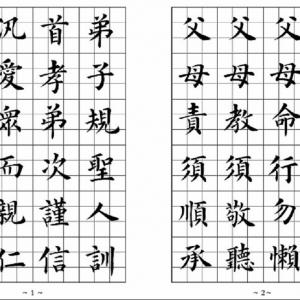 弟子規聖人訓
首孝弟次謹信
汎愛眾而親仁
~ 1 ~
父母命行勿懶
父母教須敬聽
父母責須順承
~ 2 ~